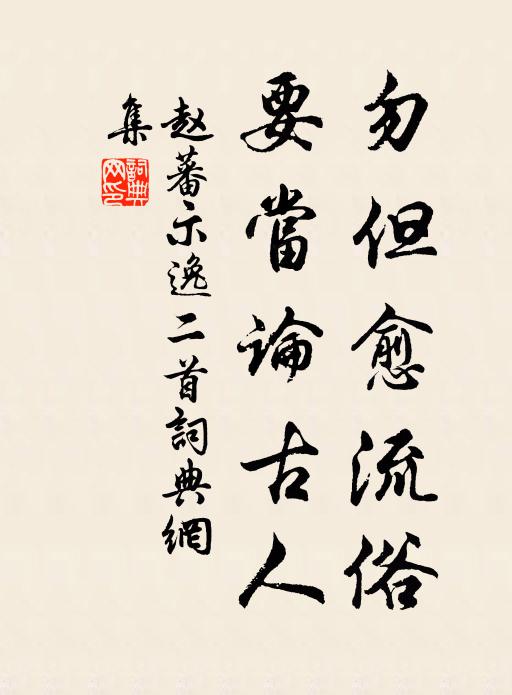 勿但愈流俗
要當論古人
赵蕃示逸二首詞典網
集
詞典網印